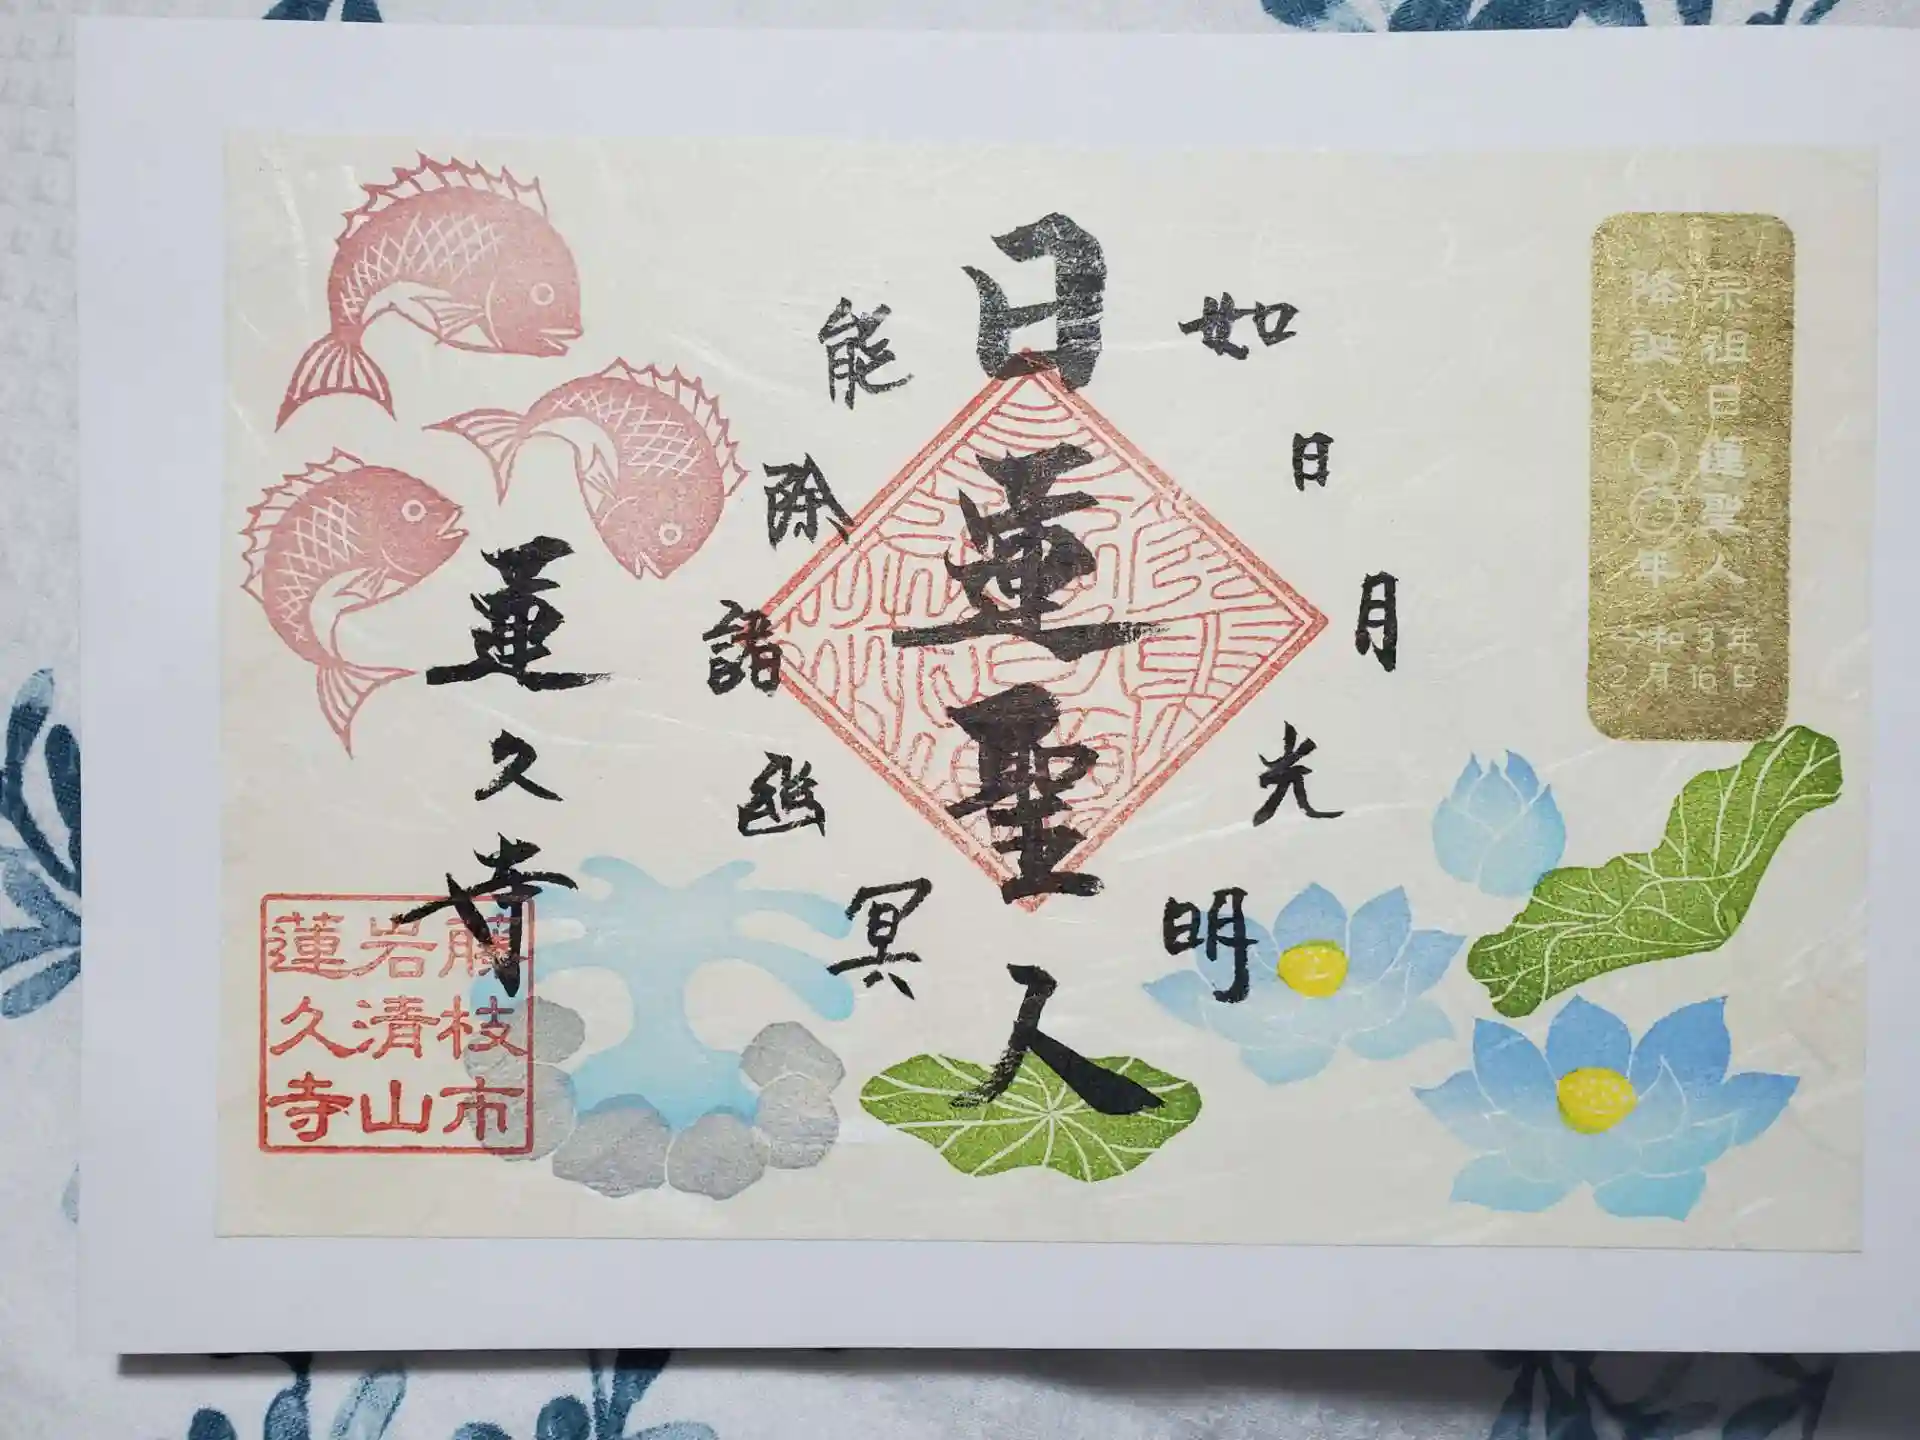 宗祖日蓮聖人
降誕八〇〇年
令和3年
2月16日
如日月光明
日蓮聖人
能除諸幽冥
蓮久寺
藤枝市
岩清山
蓮久寺